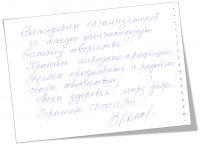 Благодарим организаторов
за такую замечательную
выставку творчества!
Храните народные традиции
Желаем процветать и радовать
своим творчеством,
Всем здоровья, мира, добра.
Огромное спасибо.